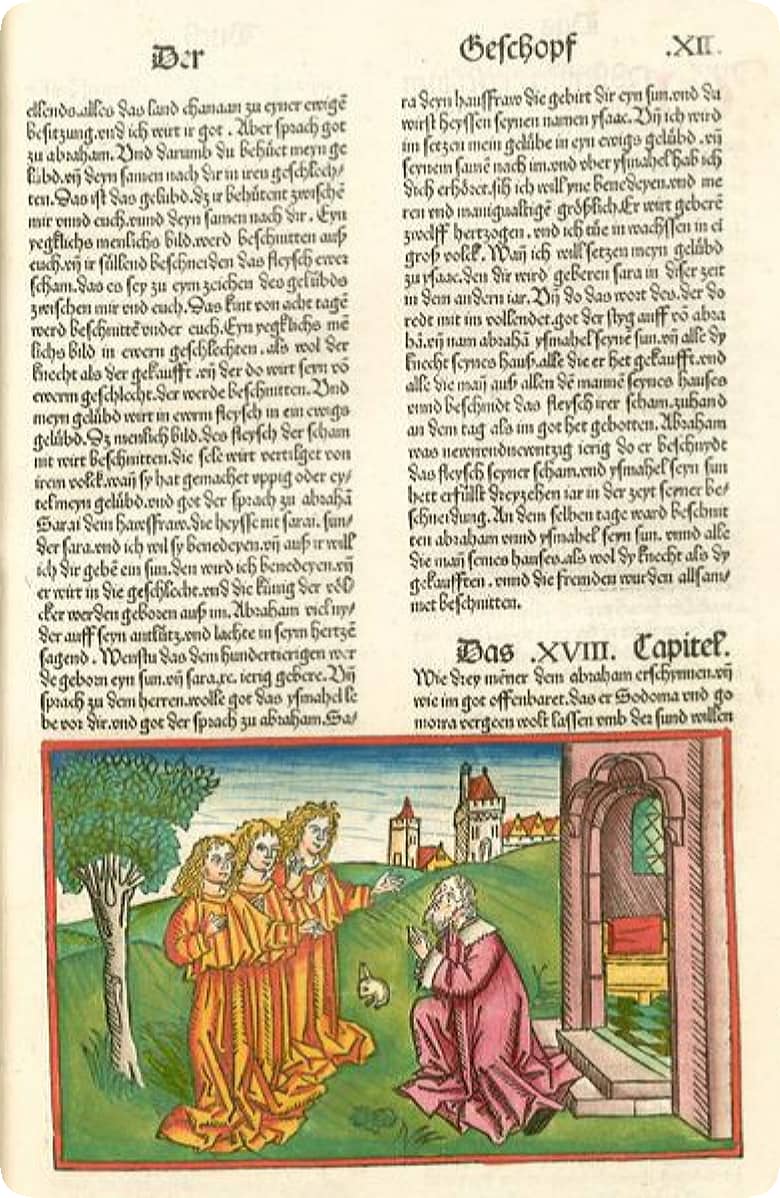 Der
Geschopf .XII.
ellends.alles das land chanaan zu eyner ewigē
besitzung.vnd ich wirt ir got . Aber sprach got
zu abraham. Vnd darumb du behüet meyn ge
lübd.vn̄ deyn samen nach dir in iren geschlech/
ten. Das ist das gelübd.dz ir behütent zwischē
mir vnnd euch.vnnd deyn samen nach dir . Eyn
yegklichs menlichs bild.werd beschnitten auß
euch.vn̄ ir süllend beschneiden das fleysch ewer
scham.das es sey zu eym zeichen des gelübds
zwischen mir vnd euch. Das kint von acht tagē
werd beschnittē vnder euch. Eyn yegklichs mē
lichs bild in ewern geschlechten . als wol der
knecht als der gekaufft .vn̄ der do wirt seyn vō
ewerm geschlecht.der werde beschnitten. Vnd
meyn gelübd wirt in ewerm fleysch in ein ewigs
gelübd. Dz menlich bild.des fleysch der scham
nit wirt beschnitten.die sele wirt vertilget von
irem volck.wan̄ sy hat gemachet vppig oder ey/
tel meyn gelübd.vnd got der sprach zu abrahā
Sarai dein haussfraw.die heysse nit sarai. sun/
der sara.vnd ich wil sy benedeyen.vn̄ auß ir will
ich dir gebē ein sun.den wird ich benedeyen.vn̄
er wirt in die geschlecht.vnd die künig der völ
cker werden geboren auß im. Abraham viel ny/
der auff seyn antlütz.vnd lachte in seym hertzē
sagend . Wenstu das dem hundertierigen wer
de geborn eyn sun.vn̄ sara.xc. ierig gebere. Vn̄
sprach zu dem herren.wolle got das ysmahel le
be vor dir.vnd got der sprach zu abraham. Sa/
ra deyn haussfraw die gebirt dir eyn sun.vnd du
wirst heyssen seynen namen ysaac. Vn̄ ich wird
im setzen mein gelübe in eyn ewigs gelübd .vn̄
seynem samē nach im.vnd vber ysmahel hab ich
dich erhöret.sih ich will yne benedeyen.vnd me
ren vnd manigualtigē größlich. Er wirt geberē
zwelff hertzogen . vnd ich tue in wachssen in ei
groß volck. Wan̄ ich will setzen meyn gelübd
zu ysaac.den dir wird geberen sara in diser zeit
in dem andern iar. Vn̄ do das wort des.der do
redt mit im vollendet.got der styg auff vō abra
hā.vn̄ nam abrahā ysmahel seynē sun.vn̄ alle dy
knecht seynes hauß.alle die er het gekaufft.vnd
alle die man̄ auß allen dē mannē seynes hauses
vnnd beschnidt das fleysch irer scham.zuhand
an dem tag als im got het gebotten. Abraham
was newnvndnewntzig ierig do er beschnydt
das fleysch seyner scham.vnd ysmahel seyn sun
hett erfüllt dreyzehen iar in der zeyt seyner be/
schneidung. An dem selben tage ward beschnit
ten abraham vnnd ysmahel seyn sun. vnnd alle
die man̄ seines hauses.als wol dy knecht als dy
gekaufften . vnnd die fremden wurden allsam/
met beschnitten.
Das .XVIII. Capitel.
Wie drey mēner dem abraham erschynnen.vn̄
wie im got offenbaret.das er Sodoma vnd go
morra vergeen wolt lassen vmb der sund willen